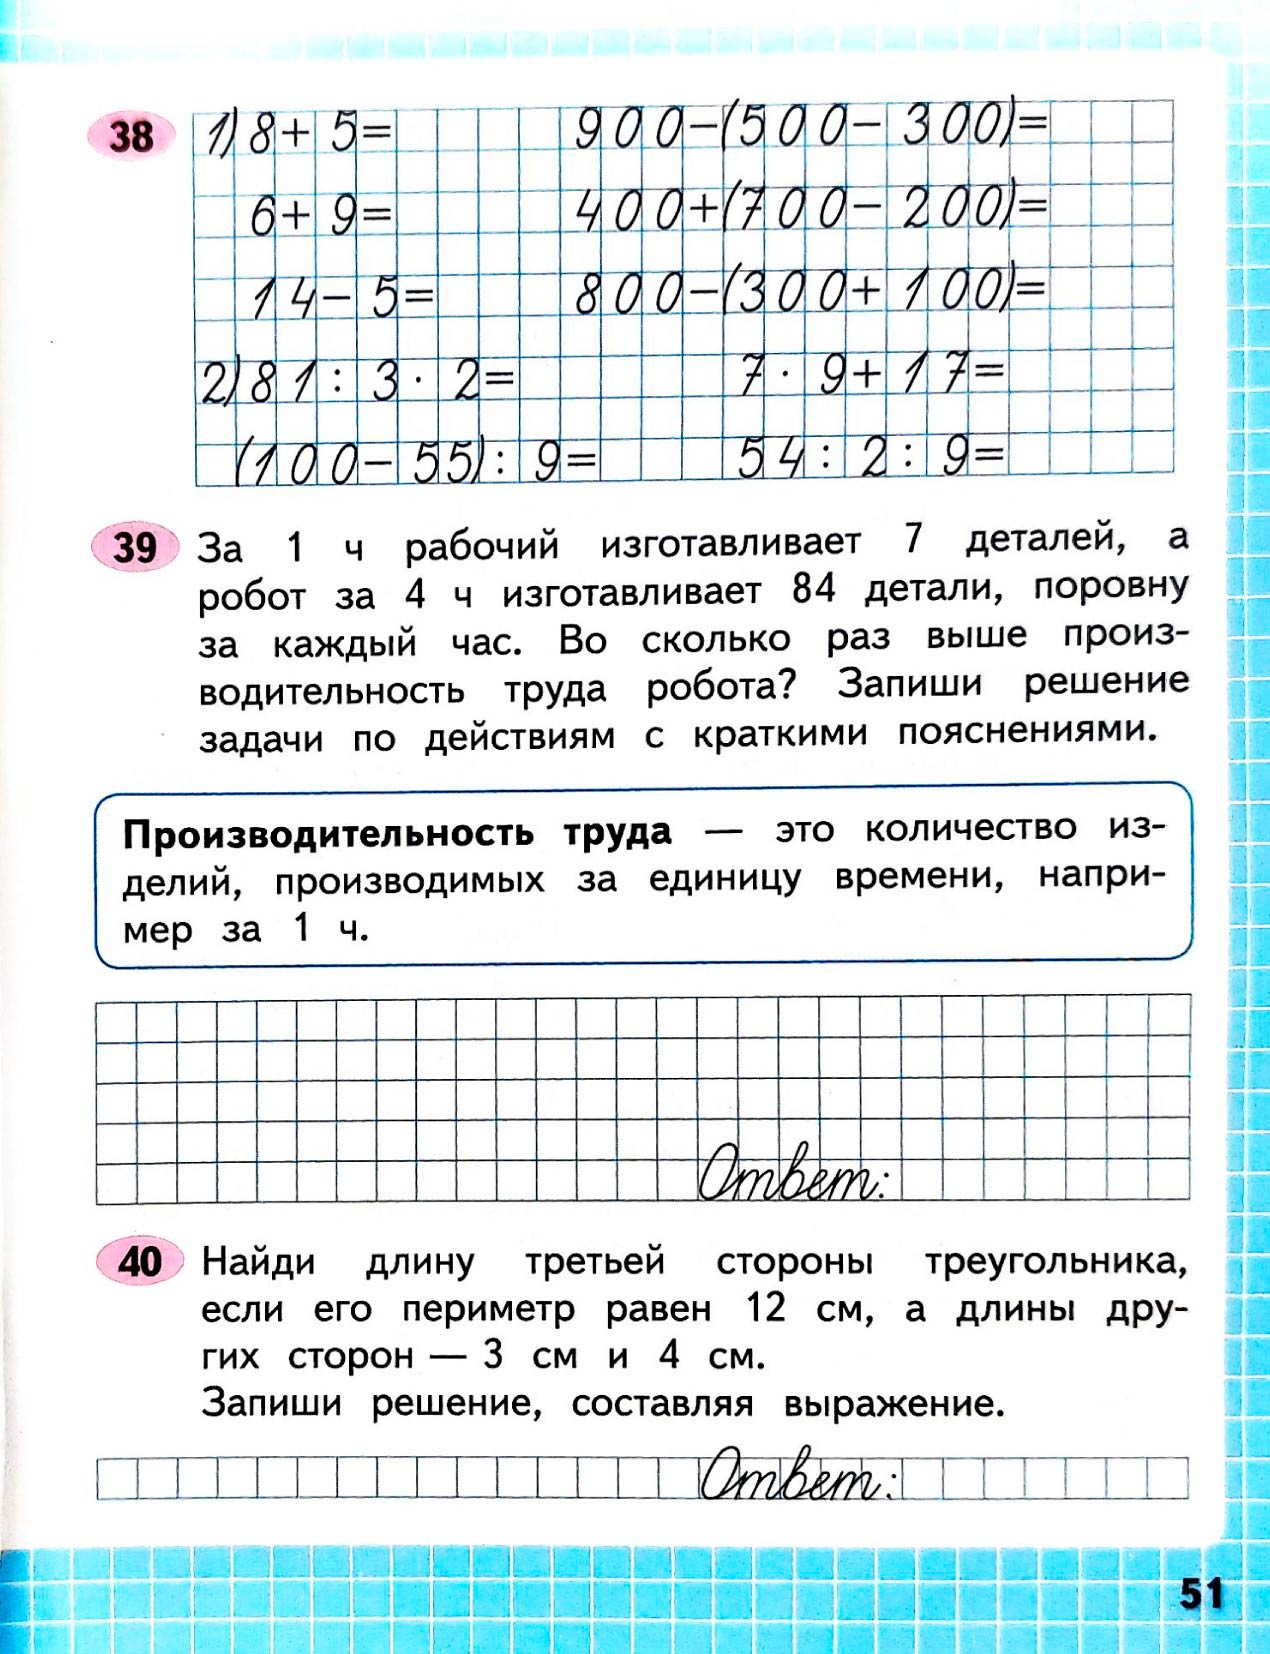 38 1) 8+5= 900-(500-300)=
6+9= 400+(700-200)=
14-5= 800-(300+100)=
2) 81:3·2= 7·9+17=
(100-55):9= 54:2:9=
39 За 1 ч рабочий изготавливает 7 деталей, а
робот за 4 ч изготавливает 84 детали, поровну
за каждый час. Во сколько раз выше произ-
водительность труда робота? Запиши решение
задачи по действиям с краткими пояснениями.
Производительность труда — это количество из-
делий, производимых за единицу времени, напри-
мер за 1 ч.
Ответ:
40 Найди длину третьей стороны треугольника,
если его периметр равен 12 см, а длины дру-
гих сторон — 3 см и 4 см.
Запиши решение, составляя выражение.
Ответ:
51